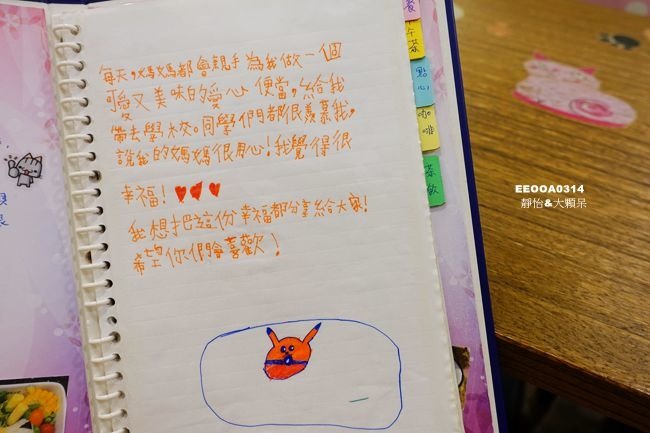 每天,媽媽都會親手為我做一個
可愛又美味的愛心便當,給我
帶去學校。同學們都很羨慕我,
說我的媽媽很用心!我覺得很
幸福!
我想把這份幸福都分享給大家!
希望你們會喜歡!
餐
午茶
點心
咖啡
茶飲
EEOOA0314
靜怡&大顆呆